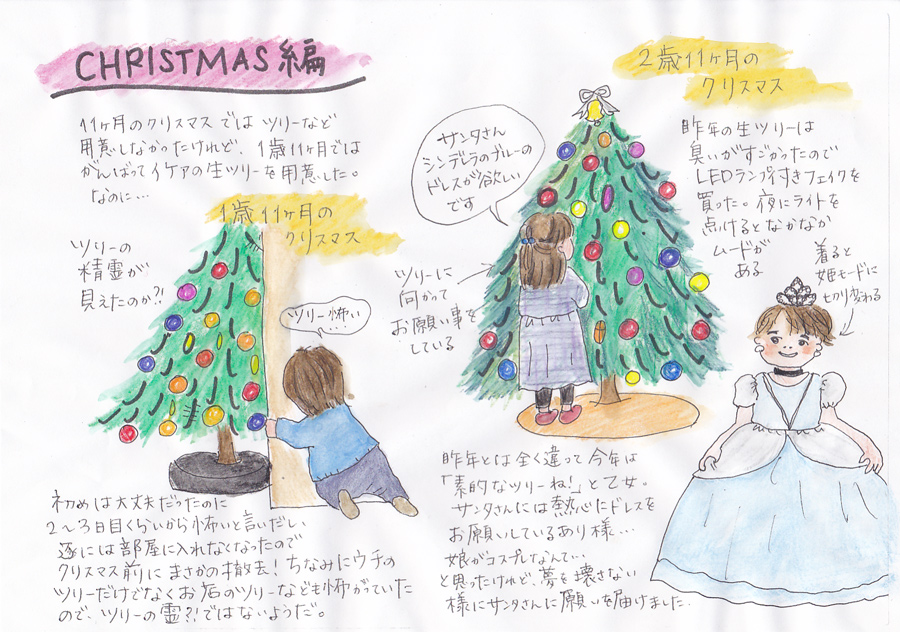 CHRISTMAS編
11ヶ月のクリスマスではツリーなど
用意しなかったけれど、1歳11ヶ月では
がんばってイケアの生ツリーを用意した。
なのに…
1歳11ヶ月の
クリスマス
ツリーの
精霊が
見えたのか?!
ツリー怖い
…
初めは大丈夫だったのに
2〜3日目くらいから怖いと言いだし
遂には部屋に入れなくなったので
クリスマス前にまさかの撤去!ちなみにウチの
ツリーだけでなくお店のツリーなども怖がっていた
ので、ツリーの霊?!ではないようだ。
2歳11ヶ月の
クリスマス
サンタさん
シンデレラのブルーの
ドレスが欲しい
です
ツリーに
向かって
お願い事を
している
昨年の生ツリーは
臭いがすごかったので
LEDランプ付きフェイクを
買った。夜にライトを
点けるとなかなか
ムードが
ある
着ると
姫モードに
切り変わる
昨年とは全く違って今年は
「素的なツリーね!」と乙女。
サンタさんには熱心にドレスを
お願いしているあり様…
娘がコスプレなんて…
と思ったけれど、夢を壊さない
様にサンタさんに願いを届けました.